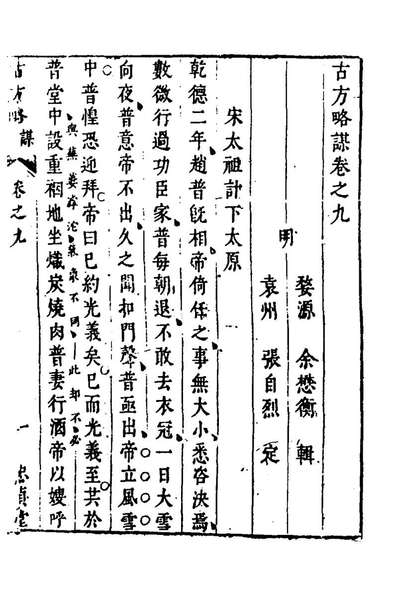 古方略謀卷之九
明
婺源 余懋衡 輯
袁州 張自烈 定
宋太祖計下太原
乾德二年趙普既相帝倚任之事無大小悉咨決焉
數微行過功臣家普每朝退不敢去衣冠一日大雪
向夜普意帝不出久之聞扣門聲普亟出帝立風雪
中普惶恐迎拜帝曰已約光義矣已而光義至共於
與蕪蔞滹沱 不同 此却不必
普堂中設重裀地坐熾炭燒肉普妻行酒帝以嫂呼
古方略謀 卷之九 一